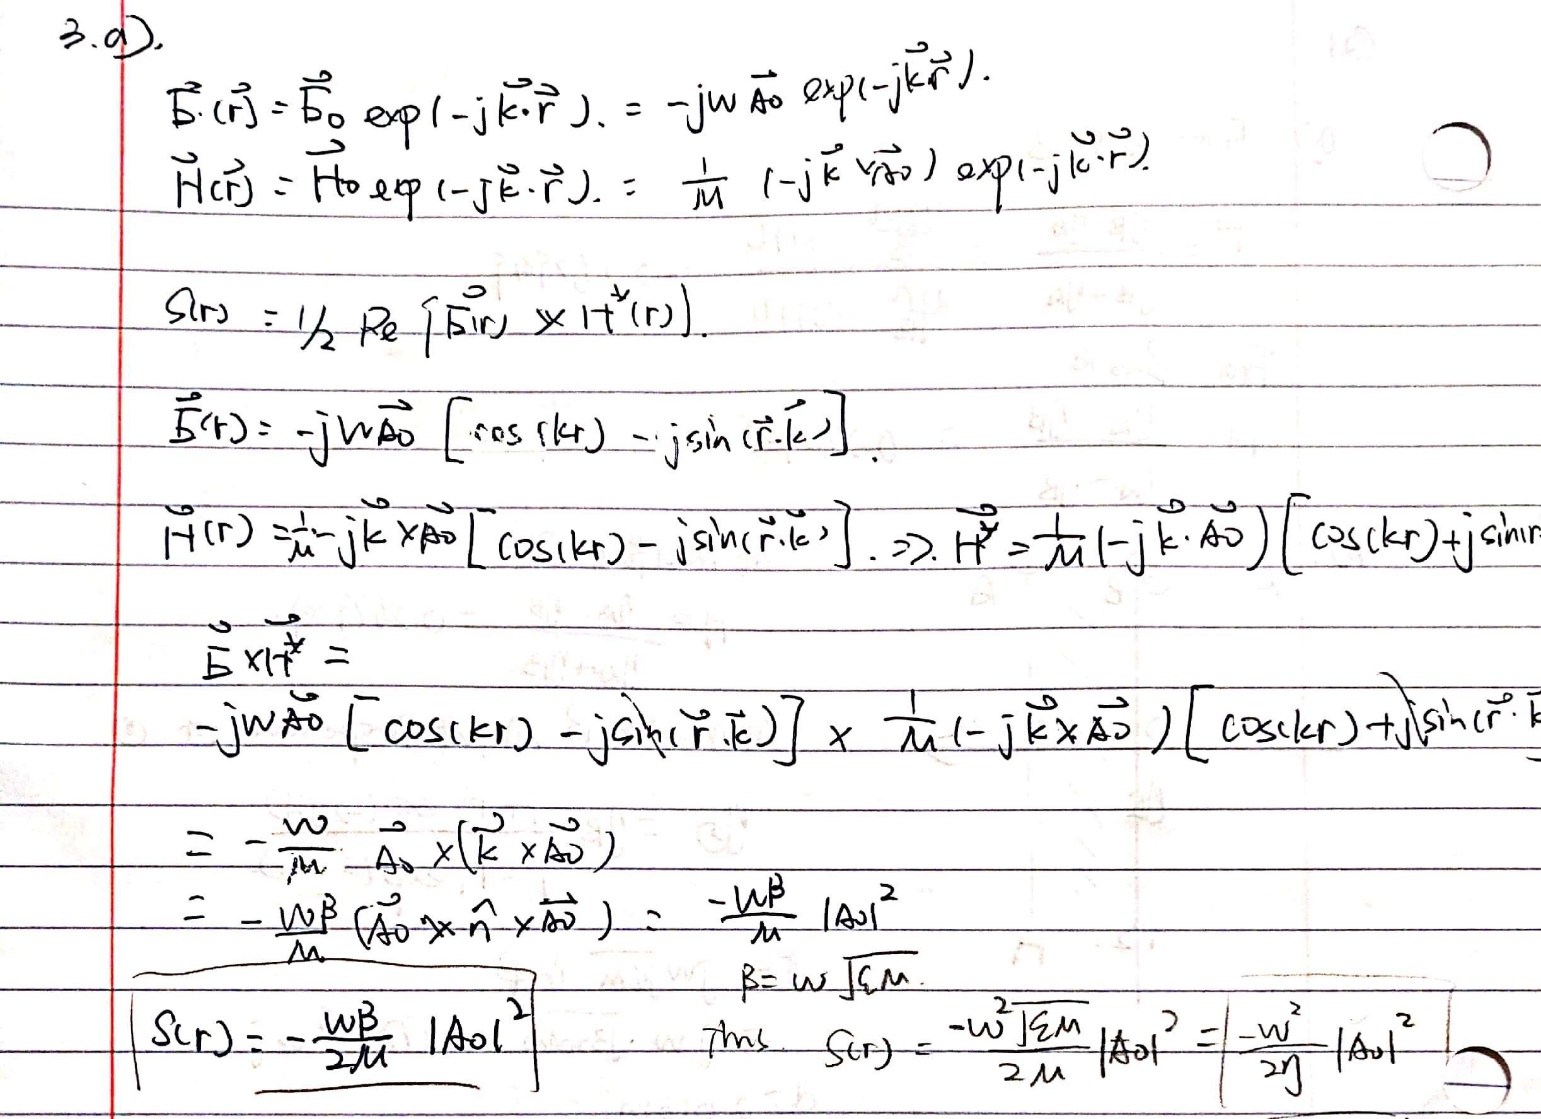 3.a).
E⃗(r⃗) = E⃗₀ exp(-jk⃗·r⃗). = -jω A⃗₀ exp(-jk⃗r⃗).
H⃗(r⃗) = H⃗₀ exp(-jk⃗·r⃗). = 1/μ (-jk⃗ × A⃗₀) exp(-jk⃗·r⃗).
S(r) = 1/2 Re {E⃗(r) × H*(r)}.
E⃗(r) = -jωA⃗₀ [cos(kr) - jsin(r⃗·k⃗)].
H⃗(r) = 1/μ -jk⃗ × A⃗₀ [cos(kr) - jsin(r⃗·k⃗)]. ⇒ H⃗* = 1/μ (-jk⃗·A⃗₀) [cos(kr) + jsin(r
E⃗ × H⃗* =
-jωA⃗₀ [cos(kr) - jsin(r⃗·k⃗)] × 1/μ (-jk⃗ × A⃗₀) [cos(kr) + jsin(r⃗·k⃗
= - ω/μ A⃗₀ × (k⃗ × A⃗₀)
= - ωβ/μ (A⃗₀ × n̂ × A⃗₀) = -ωβ/μ |A₀|²
β = ω √εμ.
S(r) = - ωβ/2μ |A₀|² Thus S(r) = -ω²√εμ/2μ |A₀|² = -ω²/2η |A₀|²